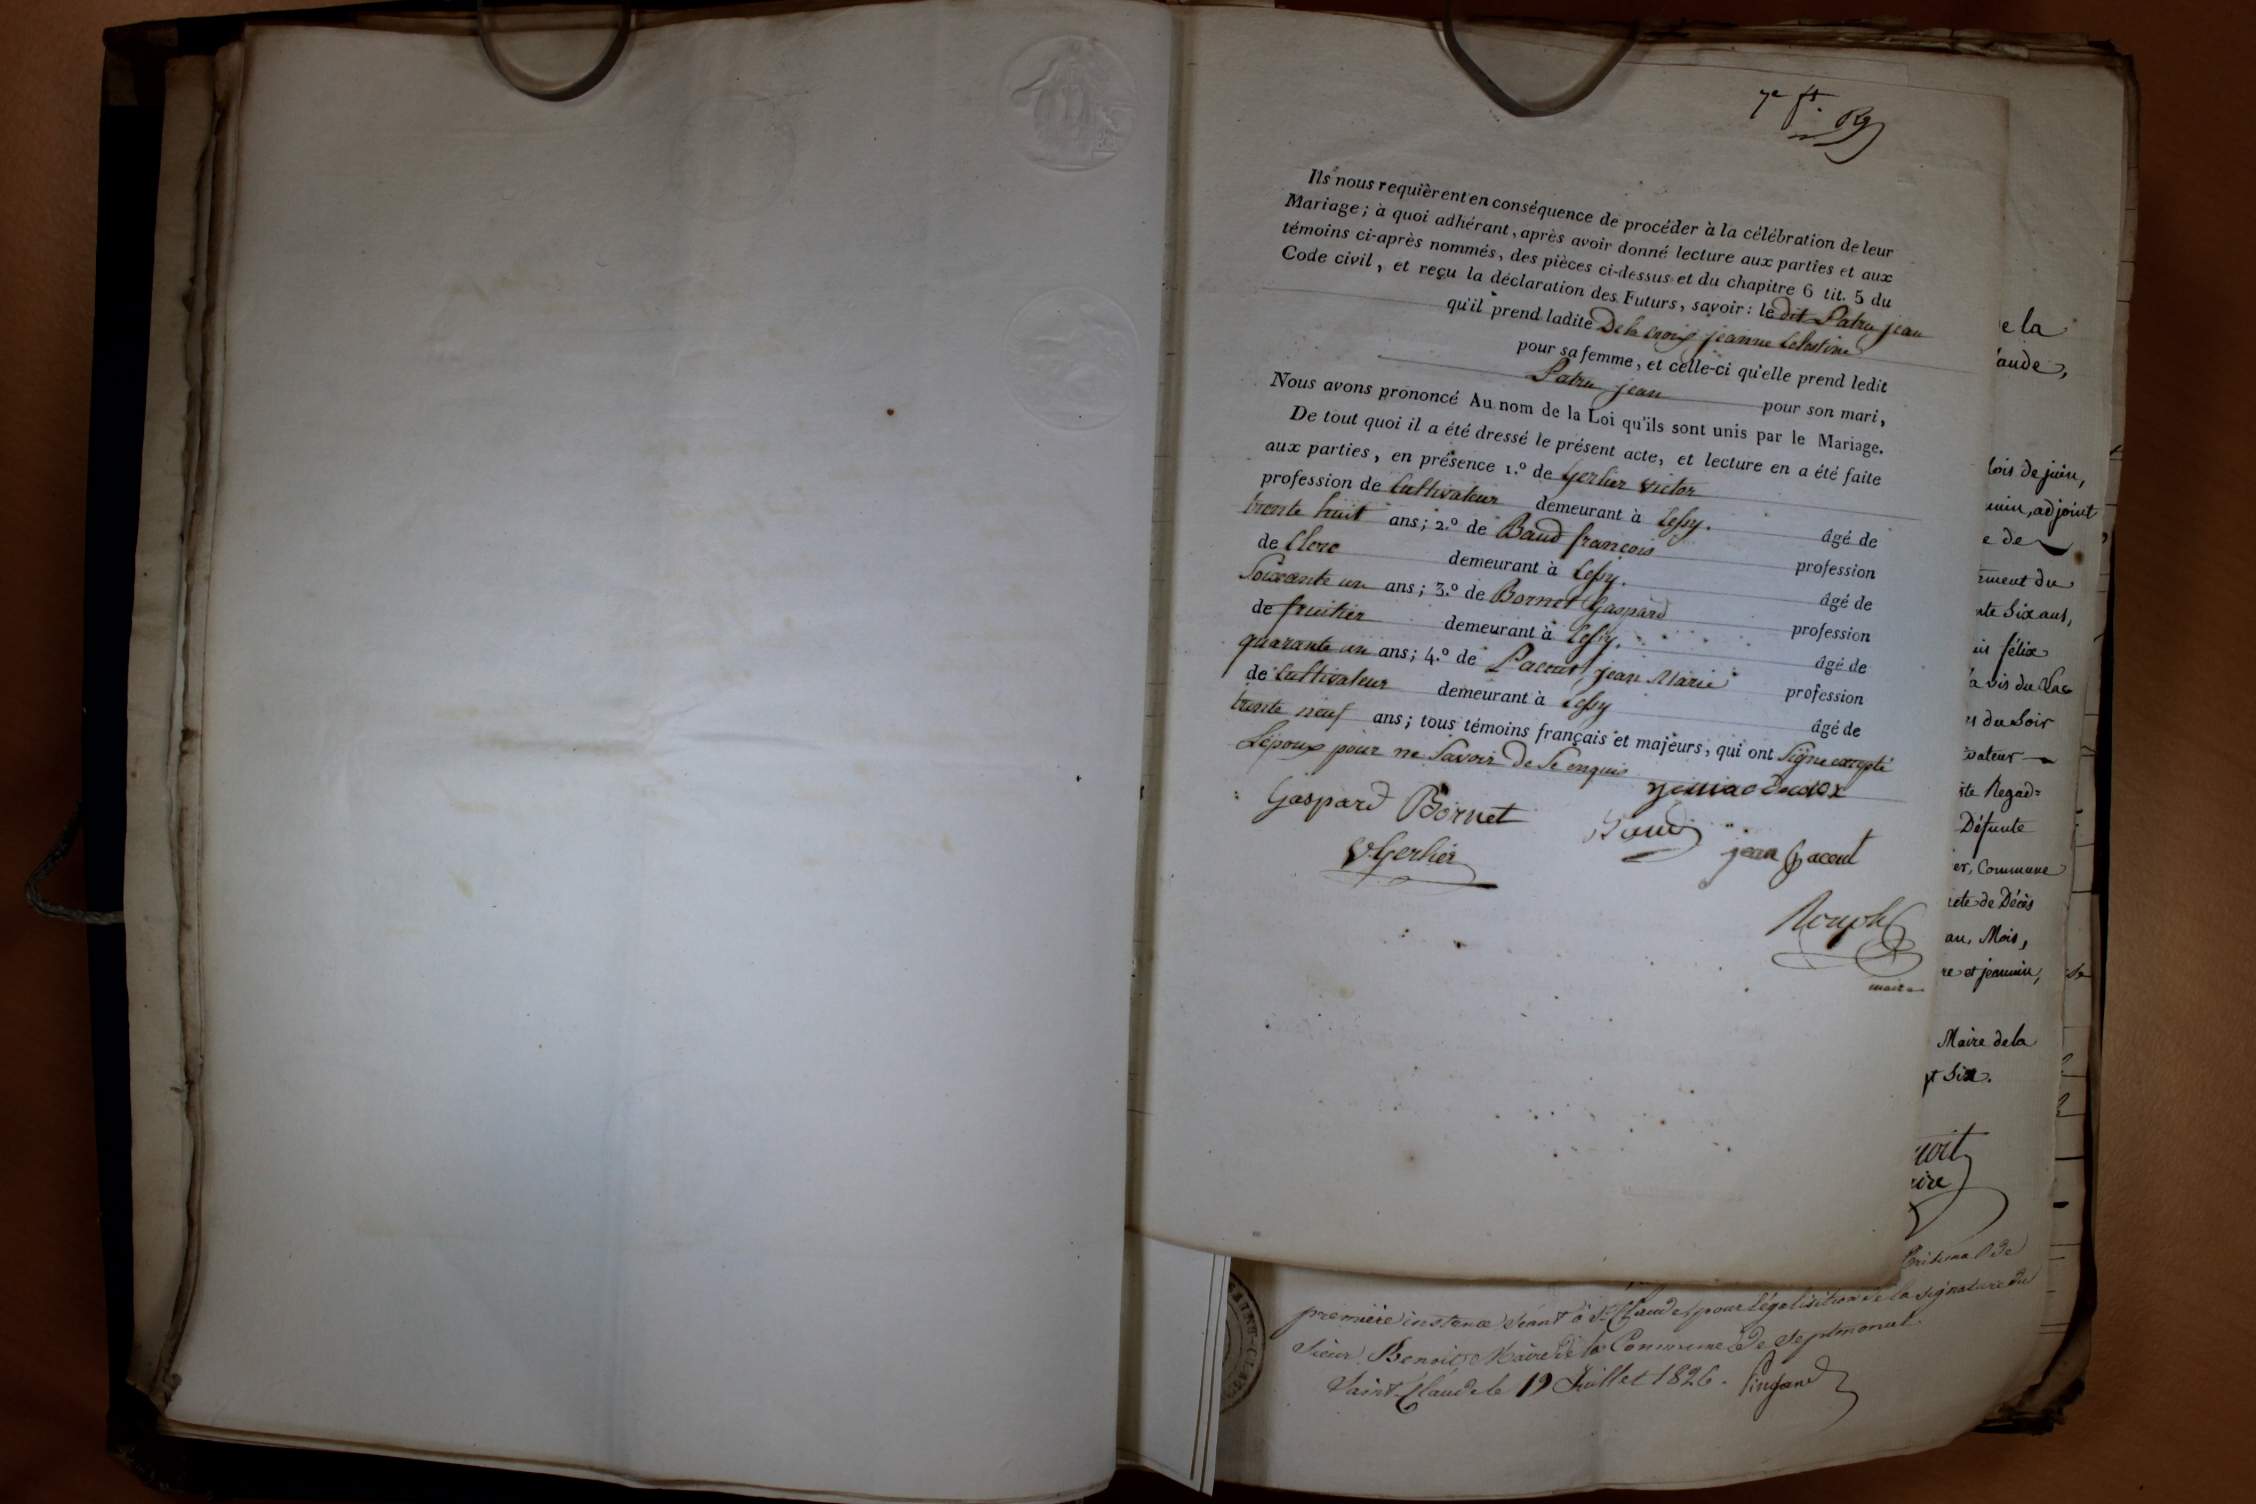 7e ft.
Ils nous requièrent en conséquence de procéder à la célébration de leur
Mariage; à quoi adhérant, après avoir donné lecture aux parties et aux
témoins ci-après nommés, des pièces ci-dessus et du chapitre 6 tit. 5 du
Code civil, et reçu la déclaration des Futurs, savoir: le dit Patru jean
qu'il prend ladite De la croix jeanne Celestine
pour sa femme, et celle-ci qu'elle prend ledit
Patru jean pour son mari,
Nous avons prononcé Au nom de la Loi qu'ils sont unis par le Mariage.
De tout quoi il a été dressé le présent acte, et lecture en a été faite
aux parties, en présence 1.º de Gerlier victor
profession de Cultivateur demeurant à Lessy. âgé de
trente huit ans; 2.º de Baud françois profession
de Clerc demeurant à Lessy. âgé de
Soixante un ans; 3.º de Bornet Gaspard profession
de fruitier demeurant à Lessy. âgé de
quarante un ans; 4.º de Pacout jean Marie profession
de Cultivateur demeurant à Lessy âgé de
trente neuf ans; tous témoins français et majeurs, qui ont Signé excepté
Lépoux pour ne Savoir de Ce enquis
Gaspard Bornet
Baud
jean Pacout
V. Gerlier
maire
e la
aude,
lois de juin,
adjoint
e de
ment du
nte Six ans,
félix
du Soir
vateur
Regad=
Défunte
er, Commune
acte de Décès
au, Mois,
re et jeannin,
Maire de la
pt Six.
noit
aire
Tribunal de
première instance séant à St Claude, pour légalisation de la signature du
Sieur Benoit, Maire de la Commune de Septmoncel.
Saint Claude le 19 Juillet 1826.